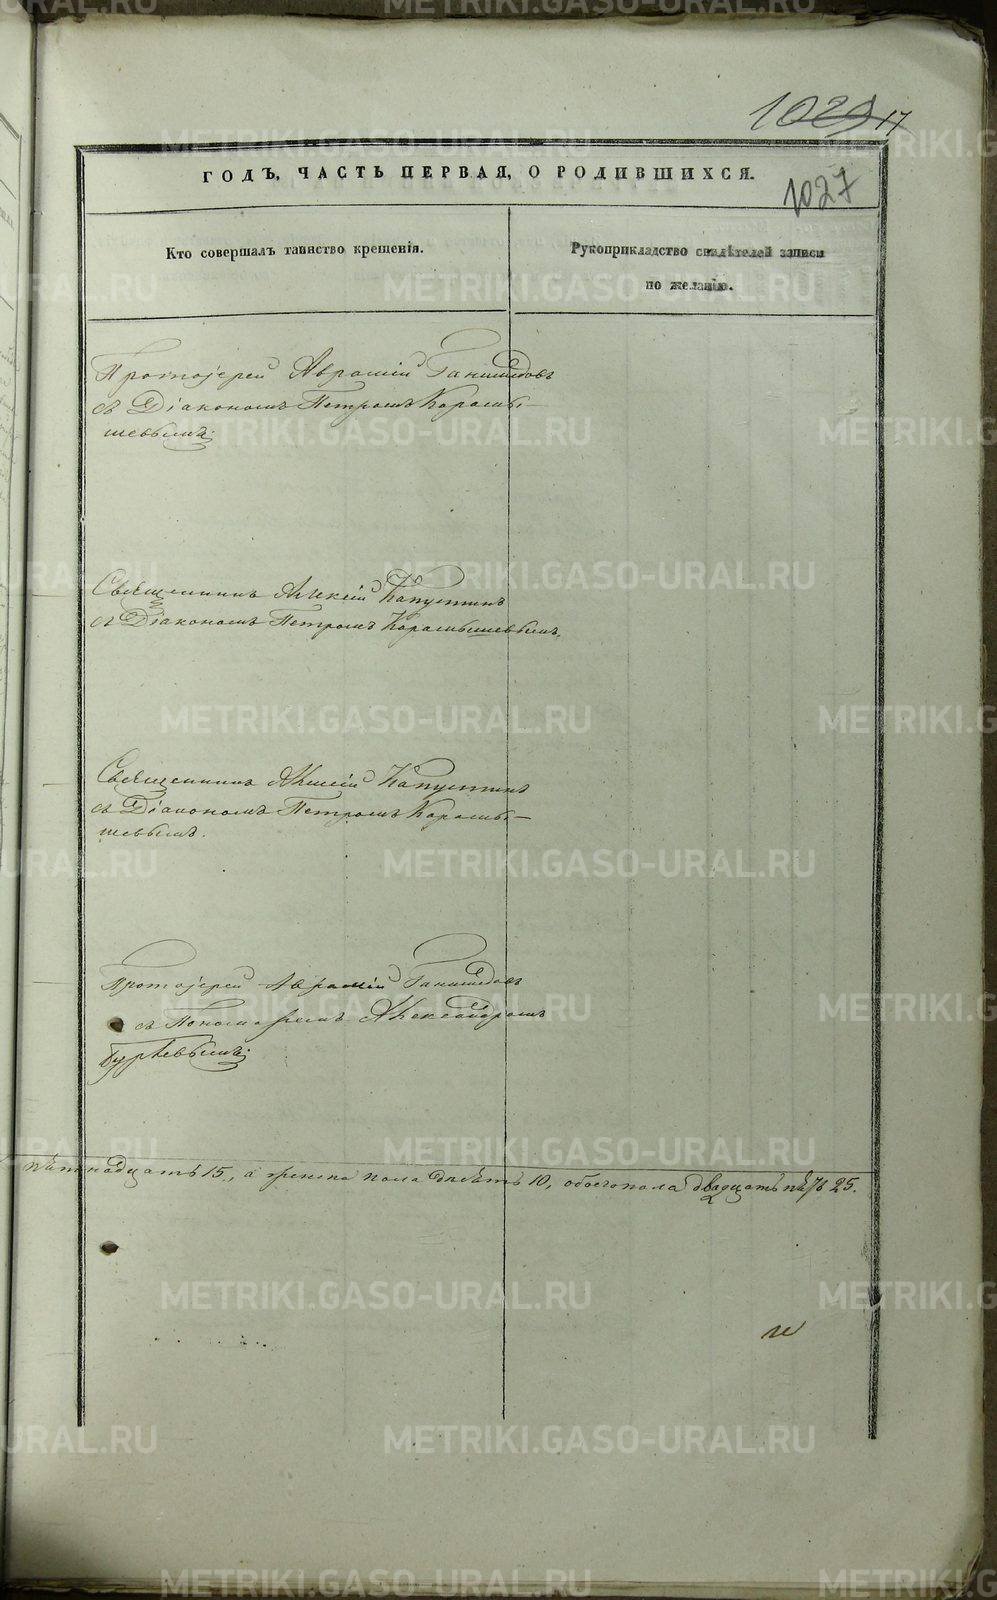 1029 17
ГОДЪ, ЧАСТЬ ПЕРВАЯ, О РОДИВШИХСЯ.
1027
Кто совершалъ таинство крещенія.
Рукоприкладство свидѣтелей записи
по желанію.
Протоіерей Аврамій
съ Діакономъ Петромъ Карамы-
шевымъ.
Священникъ Алексій Капустинъ
съ Діакономъ Петромъ Карамышевымъ.
Священникъ Алексій Капустинъ
съ Діакономъ Петромъ Карамы-
шевымъ.
Протоіерей Аврамій
съ Пономаремъ Александромъ
пятнадцать 15, а женска пола десять 10, обоего пола двадцать пять 25.
METRIKI.GASO-URAL.RU